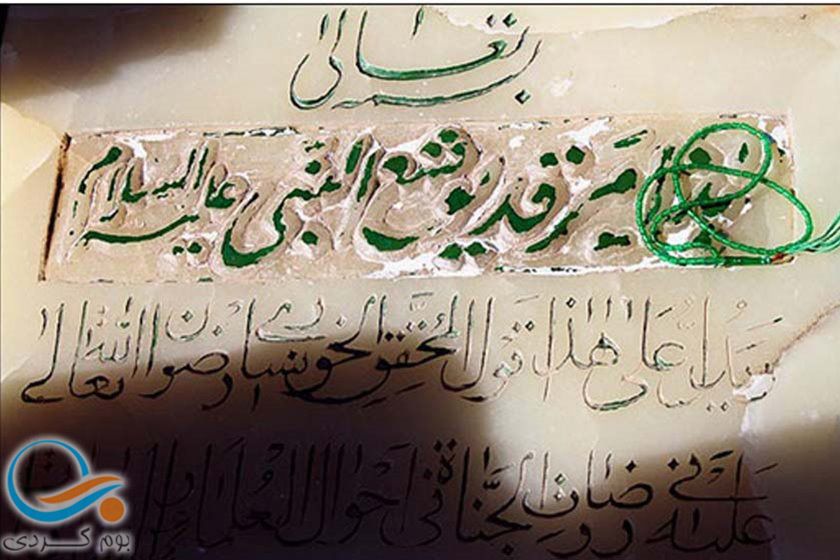 بسمه تعالی
هذا مرقد یوشع النبی علیه السلام
ویدل علی هذا قول المحقق الخونساری رضوان الله تعالی
علیه فی روضات الجنات فی احوال العلماء
بوم گردی